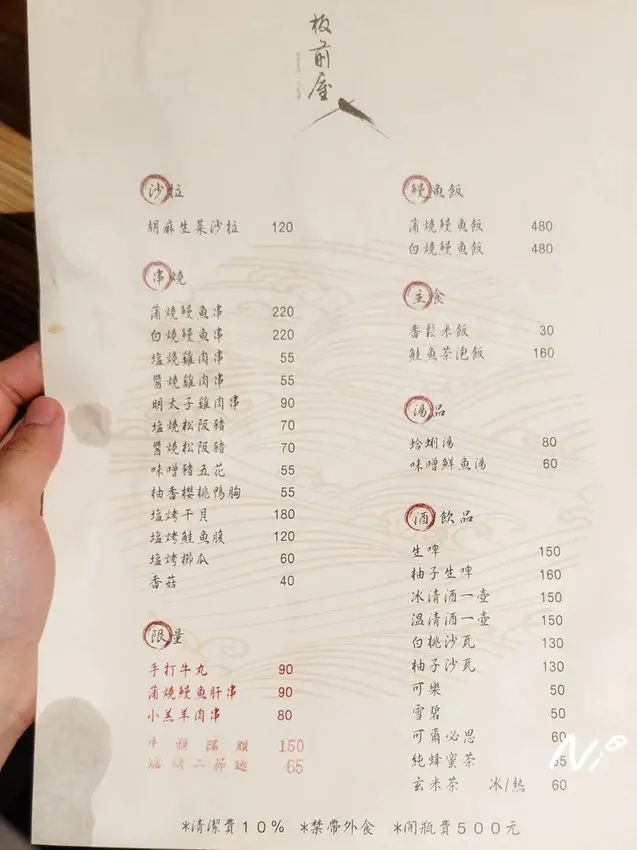 板前屋
沙拉
胡麻生菜沙拉 120
串燒
蒲燒鰻魚串 220
白燒鰻魚串 220
塩燒雞肉串 55
醬燒雞肉串 55
明太子雞肉串 90
塩燒松阪豬 70
醬燒松阪豬 70
味噌豬五花 55
柚香櫻桃鴨胸 55
塩烤干貝 180
塩烤鮭魚腹 120
塩烤櫛瓜 60
香菇 40
限量
手打牛丸 90
蒲燒鰻魚肝串 90
小羔羊肉串 80
牛橫隔膜 150
塩烤二節翅 65
鰻魚飯
蒲燒鰻魚飯 480
白燒鰻魚飯 480
主食
香鬆米飯 30
鮭魚茶泡飯 160
湯品
蛤蜊湯 80
味噌鮮魚湯 60
酒飲品
生啤 150
柚子生啤 160
冰清酒一壺 150
溫清酒一壺 150
白桃沙瓦 130
柚子沙瓦 130
可樂 50
雪碧 50
可爾必思 60
純蜂蜜茶
玄米茶 冰/熱 60
*清潔費10% *禁帶外食 *開瓶費500元